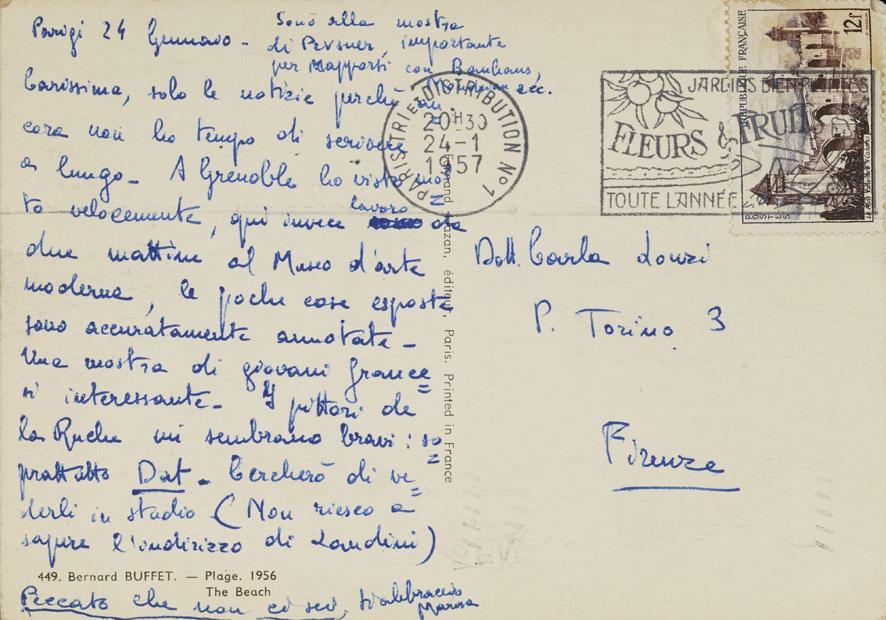 Parigi 24 Gennaio -
Sono alla mostra
di Pevsner, importante
per rapporti con Bauhaus,
ecc.
Carissima, solo le notizie perchè an
cora non ho tempo di scrivere
a lungo - A Grenoble ho visto mol
to velocemente, qui invece lavoro da
due mattine al Museo d'arte
moderna, le poche cose esposte
sono accuratamente annotate -
Una mostra di giovani france
si interessante - I pittori de
la Ruche mi sembrano bravi: so
prattutto Dat - Cercherò di ve
derli in studio (Non riesco a
sapere l'indirizzo di Landini)
449. Bernard BUFFET. — Plage. 1956
The Beach
Peccato che non ci sei, t'abbraccio
Marisa
Fernand Hazan, éditeur, Paris. Printed in France
PARIS TRI ET DISTRIBUTION N°1
20H30
24-1
1957
JARDINS BIEN PLANTÉS
FLEURS & FRUITS
TOUTE L'ANNÉE
REPUBLIQUE FRANÇAISE
12f
POSTES
Dott. Carla Lonzi
P. Torino 3
Firenze